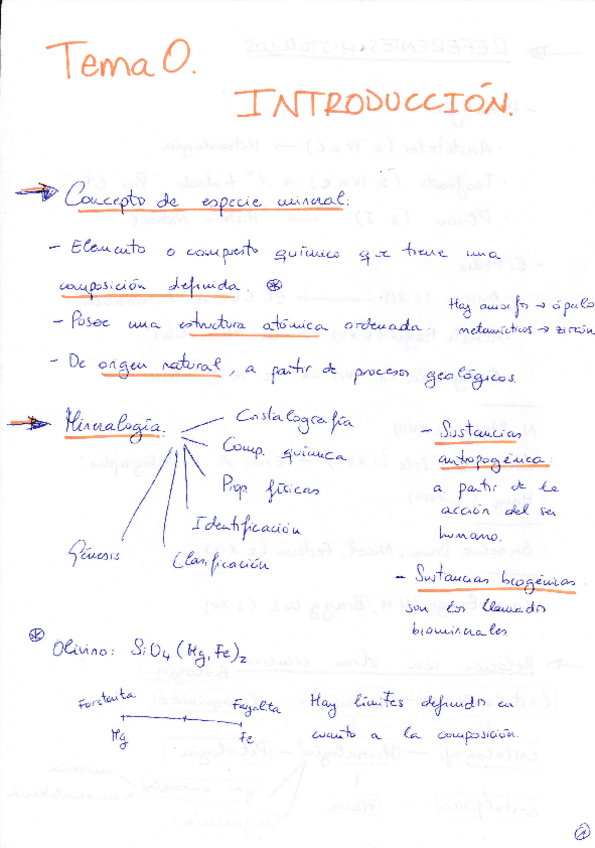 Tema 0.
INTRODUCCIÓN.
Concepto de especie mineral:
- Elemento o compuesto químico que tiene una
composición definida. *
- Posee una estructura atómica ordenada.
Hay amorfos → ópalo
metamícticos → zircón
- De origen natural, a partir de procesos geológicos.
Mineralogía:
Cristalografía
Comp. química
Prop. físicas
Identificación
Clasificación
Génesis
- Sustancias
antropogénica:
a partir de la
acción del ser
humano.
- Sustancias biogénicas
son los llamados
biominerales
* Olivino: SiO4 (Mg, Fe)2
Forsterita
Fayalita
Mg
Fe
Hay límites definido en
cuanto a la composición.
1